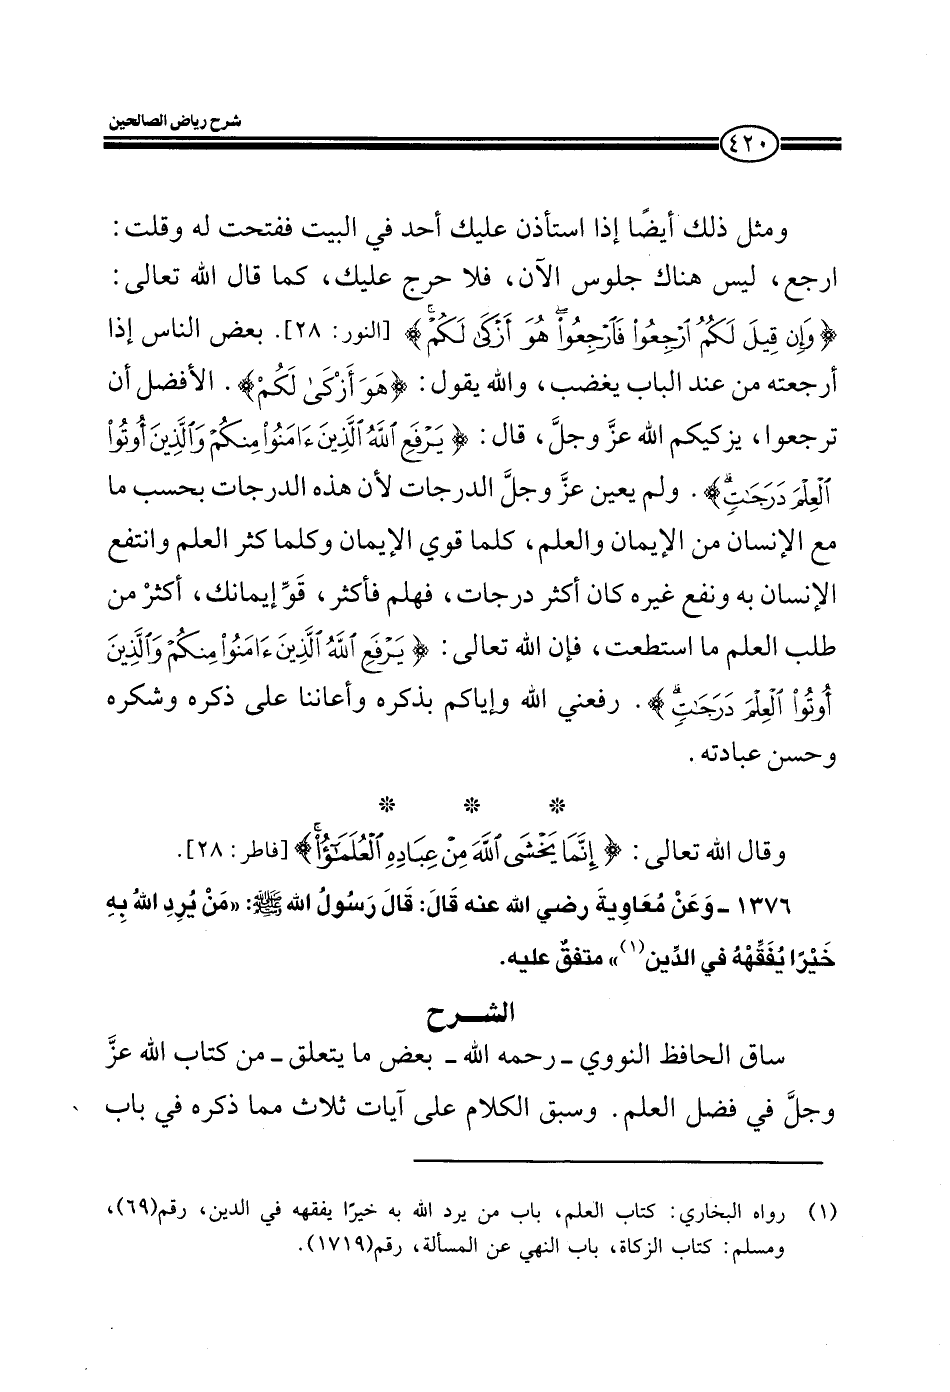 شرح رياض الصالحين
٤٢٠
ومثل ذلك أيضًا إذا استأذن عليك أحد في البيت ففتحت له وقلت:
ارجع، ليس هناك جلوس الآن، فلا حرج عليك، كما قال الله تعالى:
﴿وَإِن قِيلَ لَكُمُ ٱرۡجِعُواْ فَٱرۡجِعُواْۖ هُوَ أَزۡكَىٰ لَكُمۡۚ﴾ [النور: ٢٨]. بعض الناس إذا
أرجعته من عند الباب يغضب، والله يقول: ﴿هُوَ أَزۡكَىٰ لَكُمۡ﴾. الأفضل أن
ترجعوا، يزكيكم الله عزَّ وجلَّ، قال: ﴿يَرۡفَعِ ٱللَّهُ ٱلَّذِينَ ءَامَنُواْ مِنكُمۡ وَٱلَّذِينَ أُوتُواْ
ٱلۡعِلۡمَ دَرَجَٰتٖۚ﴾. ولم يعين عزَّ وجلَّ الدرجات لأن هذه الدرجات بحسب ما
مع الإنسان من الإيمان والعلم، كلما قوي الإيمان وكلما كثر العلم وانتفع
الإنسان به ونفع غيره كان أكثر درجات، فهلم فأكثر، قوِّ إيمانك، أكثرْ من
طلب العلم ما استطعت، فإن الله تعالى: ﴿يَرۡفَعِ ٱللَّهُ ٱلَّذِينَ ءَامَنُواْ مِنكُمۡ وَٱلَّذِينَ
أُوتُواْ ٱلۡعِلۡمَ دَرَجَٰتٖۚ﴾. رفعني الله وإياكم بذكره وأعاننا على ذكره وشكره
وحسن عبادته.
* * *
وقال الله تعالى: ﴿إِنَّمَا يَخۡشَى ٱللَّهَ مِنۡ عِبَادِهِ ٱلۡعُلَمَٰٓؤُاْۚ﴾ [فاطر: ٢٨].
١٣٧٦ ـ وَعَنْ مُعَاوِيةَ رضي الله عنه قَالَ: قَالَ رَسُولُ الله ﷺ: «مَنْ يُرِدِ اللهُ بِهِ
خَيْرًا يُفَقِّهْهُ في الدِّين(١)» متفقٌ عليه.
الشـــرح
ساق الحافظ النووي ـ رحمه الله ـ بعض ما يتعلق ـ من كتاب الله عزَّ
وجلَّ في فضل العلم. وسبق الكلام على آيات ثلاث مما ذكره في باب
(١) رواه البخاري: كتاب العلم، باب من يرد الله به خيرًا يفقهه في الدين، رقم(٦٩)،
ومسلم: كتاب الزكاة، باب النهي عن المسألة، رقم(١٧١٩).